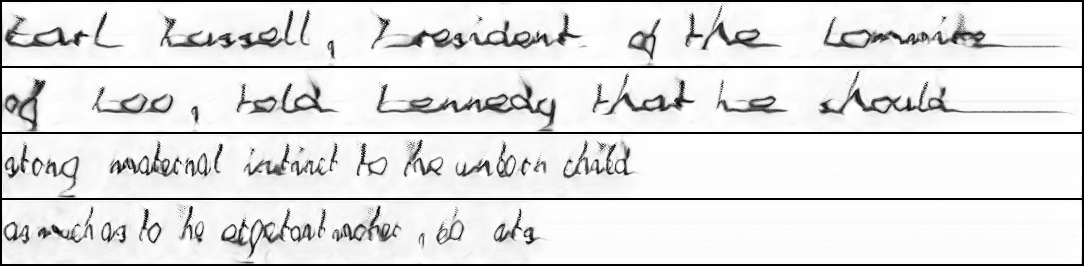 Earl Russell, President of the Committe
of 100, told Kennedy that he should
strong maternal instinct to the unborn child
as much as to he expetant mother, so